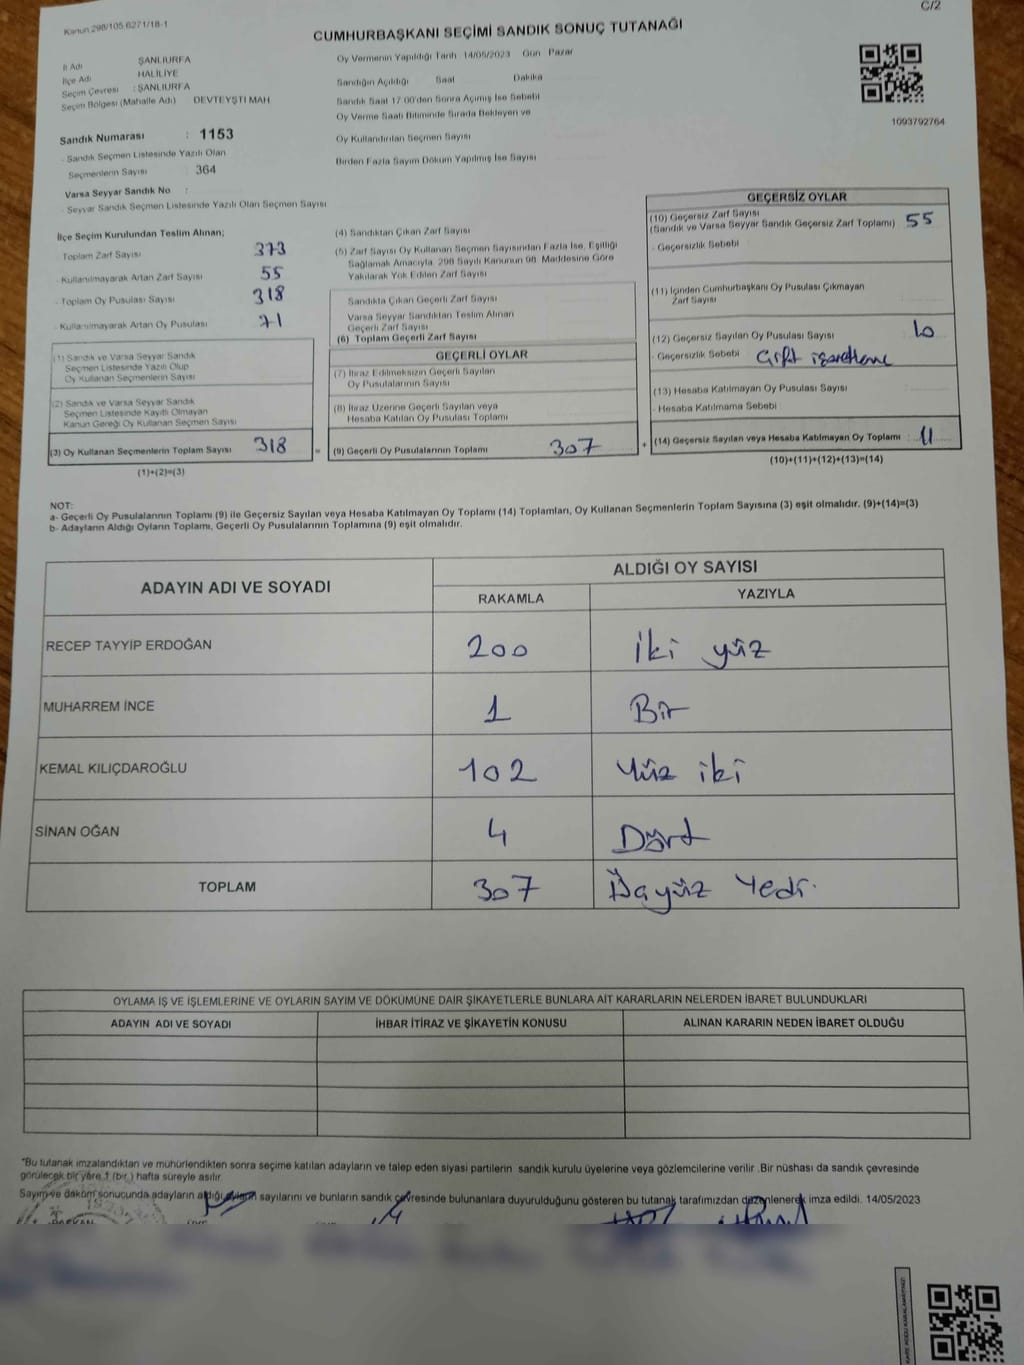 Kanun 298/105 6271/18-1
C/2
CUMHURBAŞKANI SEÇİMİ SANDIK SONUÇ TUTANAĞI
İl Adı ŞANLIURFA
İlçe Adı HALİLİYE
Seçim Çevresi : ŞANLIURFA
Seçim Bölgesi (Mahalle Adı) DEVTEYŞTİ MAH
Sandık Numarası : 1153
- Sandık Seçmen Listesinde Yazılı Olan
Seçmenlerin Sayısı : 364
Varsa Seyyar Sandık No :
- Seyyar Sandık Seçmen Listesinde Yazılı Olan Seçmen Sayısı
Oy Vermenin Yapıldığı Tarih 14/05/2023 Gün Pazar
Sandığın Açıldığı Saat Dakika
Sandık Saat 17 00'den Sonra Açımış İse Sebebi
Oy Verme Saati Bitiminde Sırada Bekleyen ve
Oy Kullandırılan Seçmen Sayısı
Birden Fazla Sayım Döküm Yapılmış İse Sayısı
1093792764
İlçe Seçim Kurulundan Teslim Alınan;
Toplam Zarf Sayısı 373
- Kullanılmayarak Artan Zarf Sayısı 55
- Toplam Oy Pusulası Sayısı 318
- Kullanılmayarak Artan Oy Pusulası 71
(1) Sandık ve Varsa Seyyar Sandık
Seçmen Listesinde Yazılı Olup
Oy Kullanan Seçmenlerin Sayısı
(2) Sandık ve Varsa Seyyar Sandık
Seçmen Listesinde Kayıtlı Olmayan
Kanun Gereği Oy Kullanan Seçmen Sayısı
(3) Oy Kullanan Seçmenlerin Toplam Sayısı 318 =
(1)+(2)=(3)
(4) Sandıktan Çıkan Zarf Sayısı
(5) Zarf Sayısı Oy Kullanan Seçmen Sayısından Fazla İse, Eşitliği
Sağlamak Amacıyla, 298 Sayılı Kanunun 98. Maddesine Göre
Yakılarak Yok Edilen Zarf Sayısı
Sandıkta Çıkan Geçerli Zarf Sayısı
Varsa Seyyar Sandıktan Teslim Alınan
Geçerli Zarf Sayısı
(6) Toplam Geçerli Zarf Sayısı
GEÇERLİ OYLAR
(7) İtiraz Edilmeksizin Geçerli Sayılan
Oy Pusulalarının Sayısı
(8) İtiraz Üzerine Geçerli Sayılan veya
Hesaba Katılan Oy Pusulası Toplamı
(9) Geçerli Oy Pusulalarının Toplamı 307 +
GEÇERSİZ OYLAR
(10) Geçersiz Zarf Sayısı
(Sandık ve Varsa Seyyar Sandık Geçersiz Zarf Toplamı) 55
- Geçersizlik Sebebi
(11) İçinden Cumhurbaşkanı Oy Pusulası Çıkmayan
Zarf Sayısı
(12) Geçersiz Sayılan Oy Pusulası Sayısı 10
- Geçersizlik Sebebi Çift işaretleme
(13) Hesaba Katılmayan Oy Pusulası Sayısı
- Hesaba Katılmama Sebebi
(14) Geçersiz Sayılan veya Hesaba Katılmayan Oy Toplamı : 11
(10)+(11)+(12)+(13)=(14)
NOT:
a- Geçerli Oy Pusulalarının Toplamı (9) ile Geçersiz Sayılan veya Hesaba Katılmayan Oy Toplamı (14) Toplamları, Oy Kullanan Seçmenlerin Toplam Sayısına (3) eşit olmalıdır. (9)+(14)=(3)
b- Adayların Aldığı Oyların Toplamı, Geçerli Oy Pusulalarının Toplamına (9) eşit olmalıdır.
ADAYIN ADI VE SOYADI
ALDIĞI OY SAYISI
RAKAMLA YAZIYLA
RECEP TAYYİP ERDOĞAN 200 İki yüz
MUHARREM İNCE 1 Bir
KEMAL KILIÇDAROĞLU 102 Yüz iki
SİNAN OĞAN 4 Dört
TOPLAM 307 Üçyüz Yedi.
OYLAMA İŞ VE İŞLEMLERİNE VE OYLARIN SAYIM VE DÖKÜMÜNE DAİR ŞİKAYETLERLE BUNLARA AİT KARARLARIN NELERDEN İBARET BULUNDUKLARI
ADAYIN ADI VE SOYADI İHBAR İTİRAZ VE ŞİKAYETİN KONUSU ALINAN KARARIN NEDEN İBARET OLDUĞU
"Bu tutanak imzalandıktan ve mühürlendikten sonra seçime katılan adayların ve talep eden siyasi partilerin sandık kurulu üyelerine veya gözlemcilerine verilir .Bir nüshası da sandık çevresinde
görülecek bir yere 1 (bir ) hafta süreyle asılır.
Sayım ve döküm sonucunda adayların aldığı sayılarını ve bunların sandık çevresinde bulunanlara duyurulduğunu gösteren bu tutanak tarafımızdan düzenlenerek imza edildi. 14/05/2023
BAŞKAN